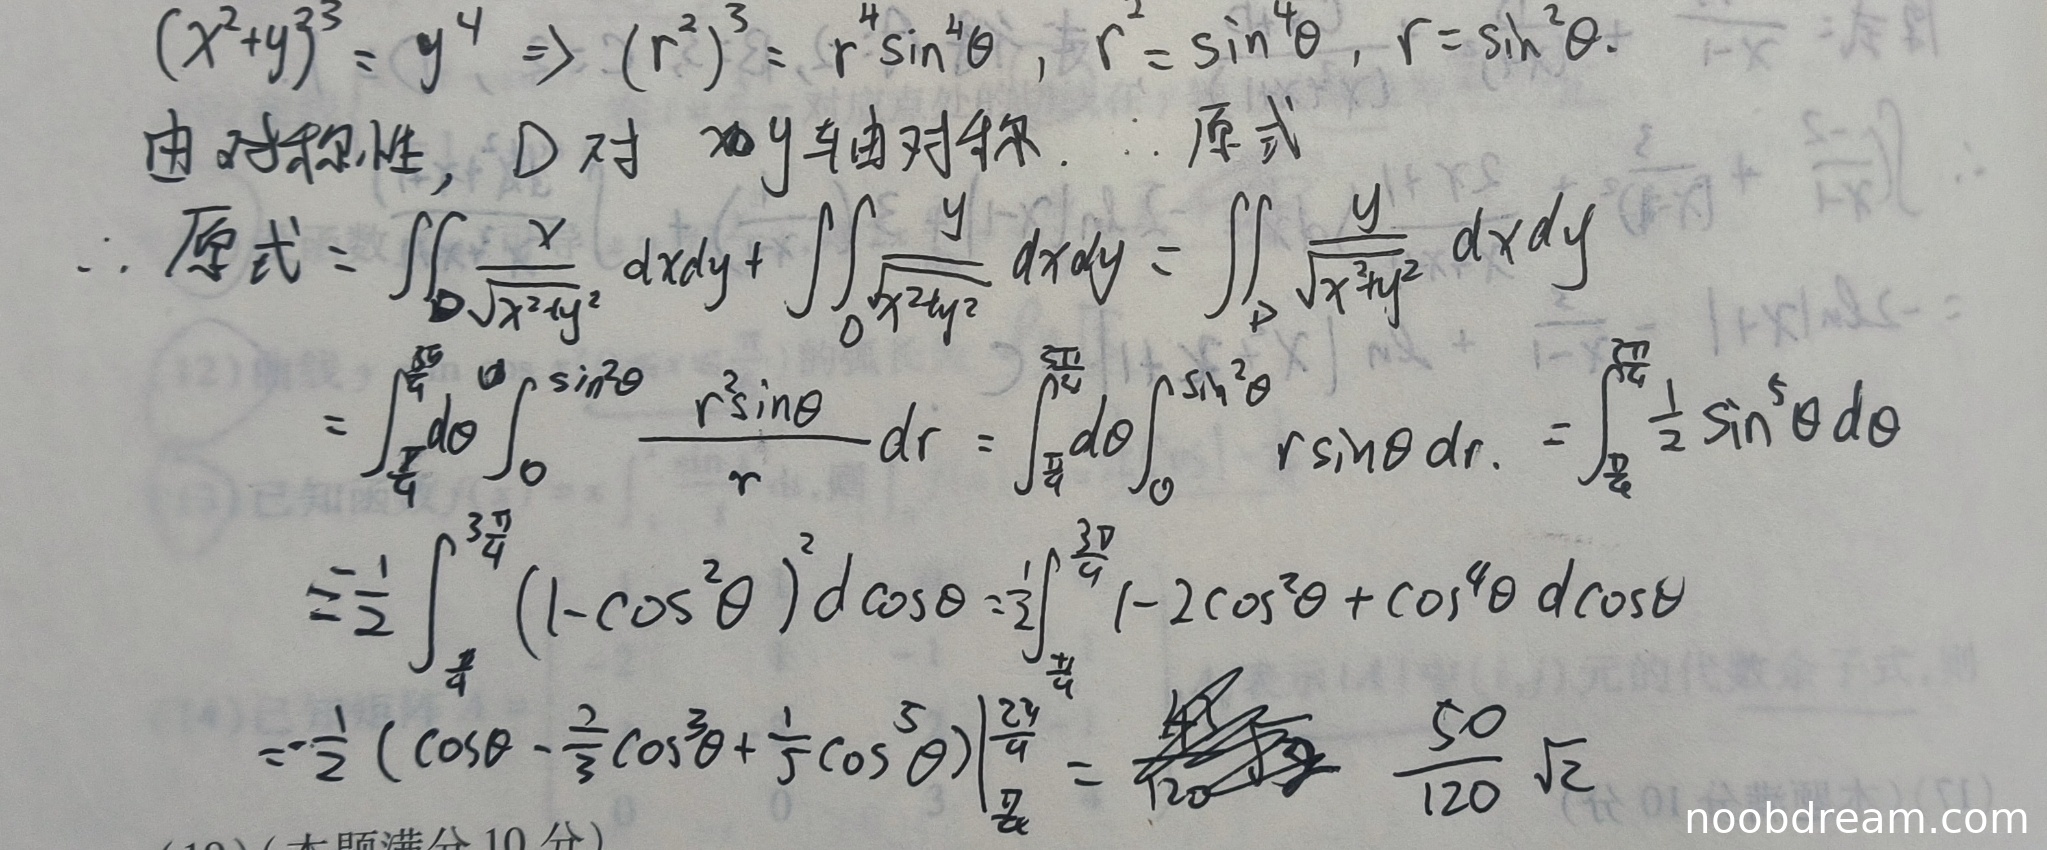 (x²+y²)³ = y⁴ => (r²)³ = r⁴sin⁴θ, r² = sin⁴θ, r = sin²θ.
由对称性, D 对 y轴对称. ∴ 原式
∴ 原式 = ∬_D x/√(x²+y²) dxdy + ∬_D y/√(x²+y²) dxdy = ∬_D y/√(x²+y²) dxdy
= ∫_{π/4}^{3π/4} dθ ∫_0^{sin²θ} r²sinθ/r dr = ∫_{π/4}^{3π/4} dθ ∫_0^{sin²θ} r sinθ dr. = ∫_{π/4}^{3π/4} 1/2 sin⁵θ dθ
= -1/2 ∫_{π/4}^{3π/4} (1-cos²θ)² d cosθ = -1/2 ∫_{π/4}^{3π/4} 1-2cos²θ + cos⁴θ d cosθ
= -1/2 (cosθ - 2/3 cos³θ + 1/5 cos⁵θ) | = 50/120 √2
(本题满分 10 分)
noobdream.com